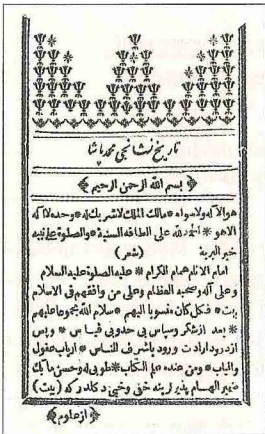 تاريخ نشانجى محمد پاشا
بسم الله الرحمن الرحيم
هو الاله ولا سواه * مالك الملك لا شريك له * وحده لا اله
الا هو * احمد لله على الطافه السنية * والصلوة على نبيه
خير البرية (شعر)
امام الانام همام الكرام * عليه الصلوة عليه السلام
وعلى آله وصحبه العظام وعلى من وافقهم فى الاسلام
بيت * فكل كان منسوبا اليهم * سلام الله جمعا عليهم
* بعد از شكر وسپاس بى حد وبى قياس * وپس
از درود ارادت ورود باشرف الناس * ارباب عقول
والباب * ومن عنده الكتاب * طوبى له وحسن مآبك
ضمير الهام پذيرلرينه خفى دكلدركه (بيت)
* از علوم *